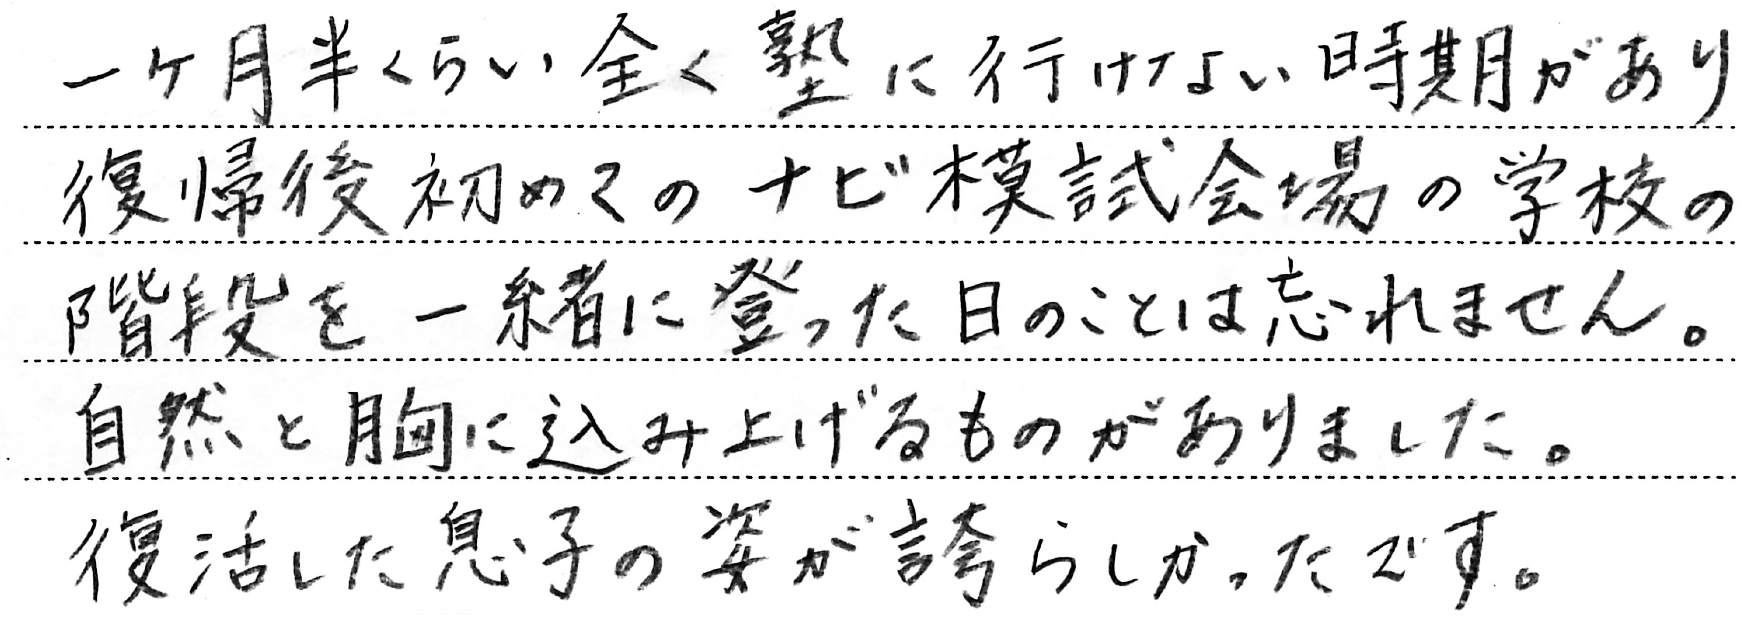 一ヶ月半くらい全く塾に行けない時期があり
復帰後初めてのナビ模試会場の学校の
階段を一緒に登った日のことは忘れません。
自然と胸に込み上げるものがありました。
復活した息子の姿が誇らしかったです。